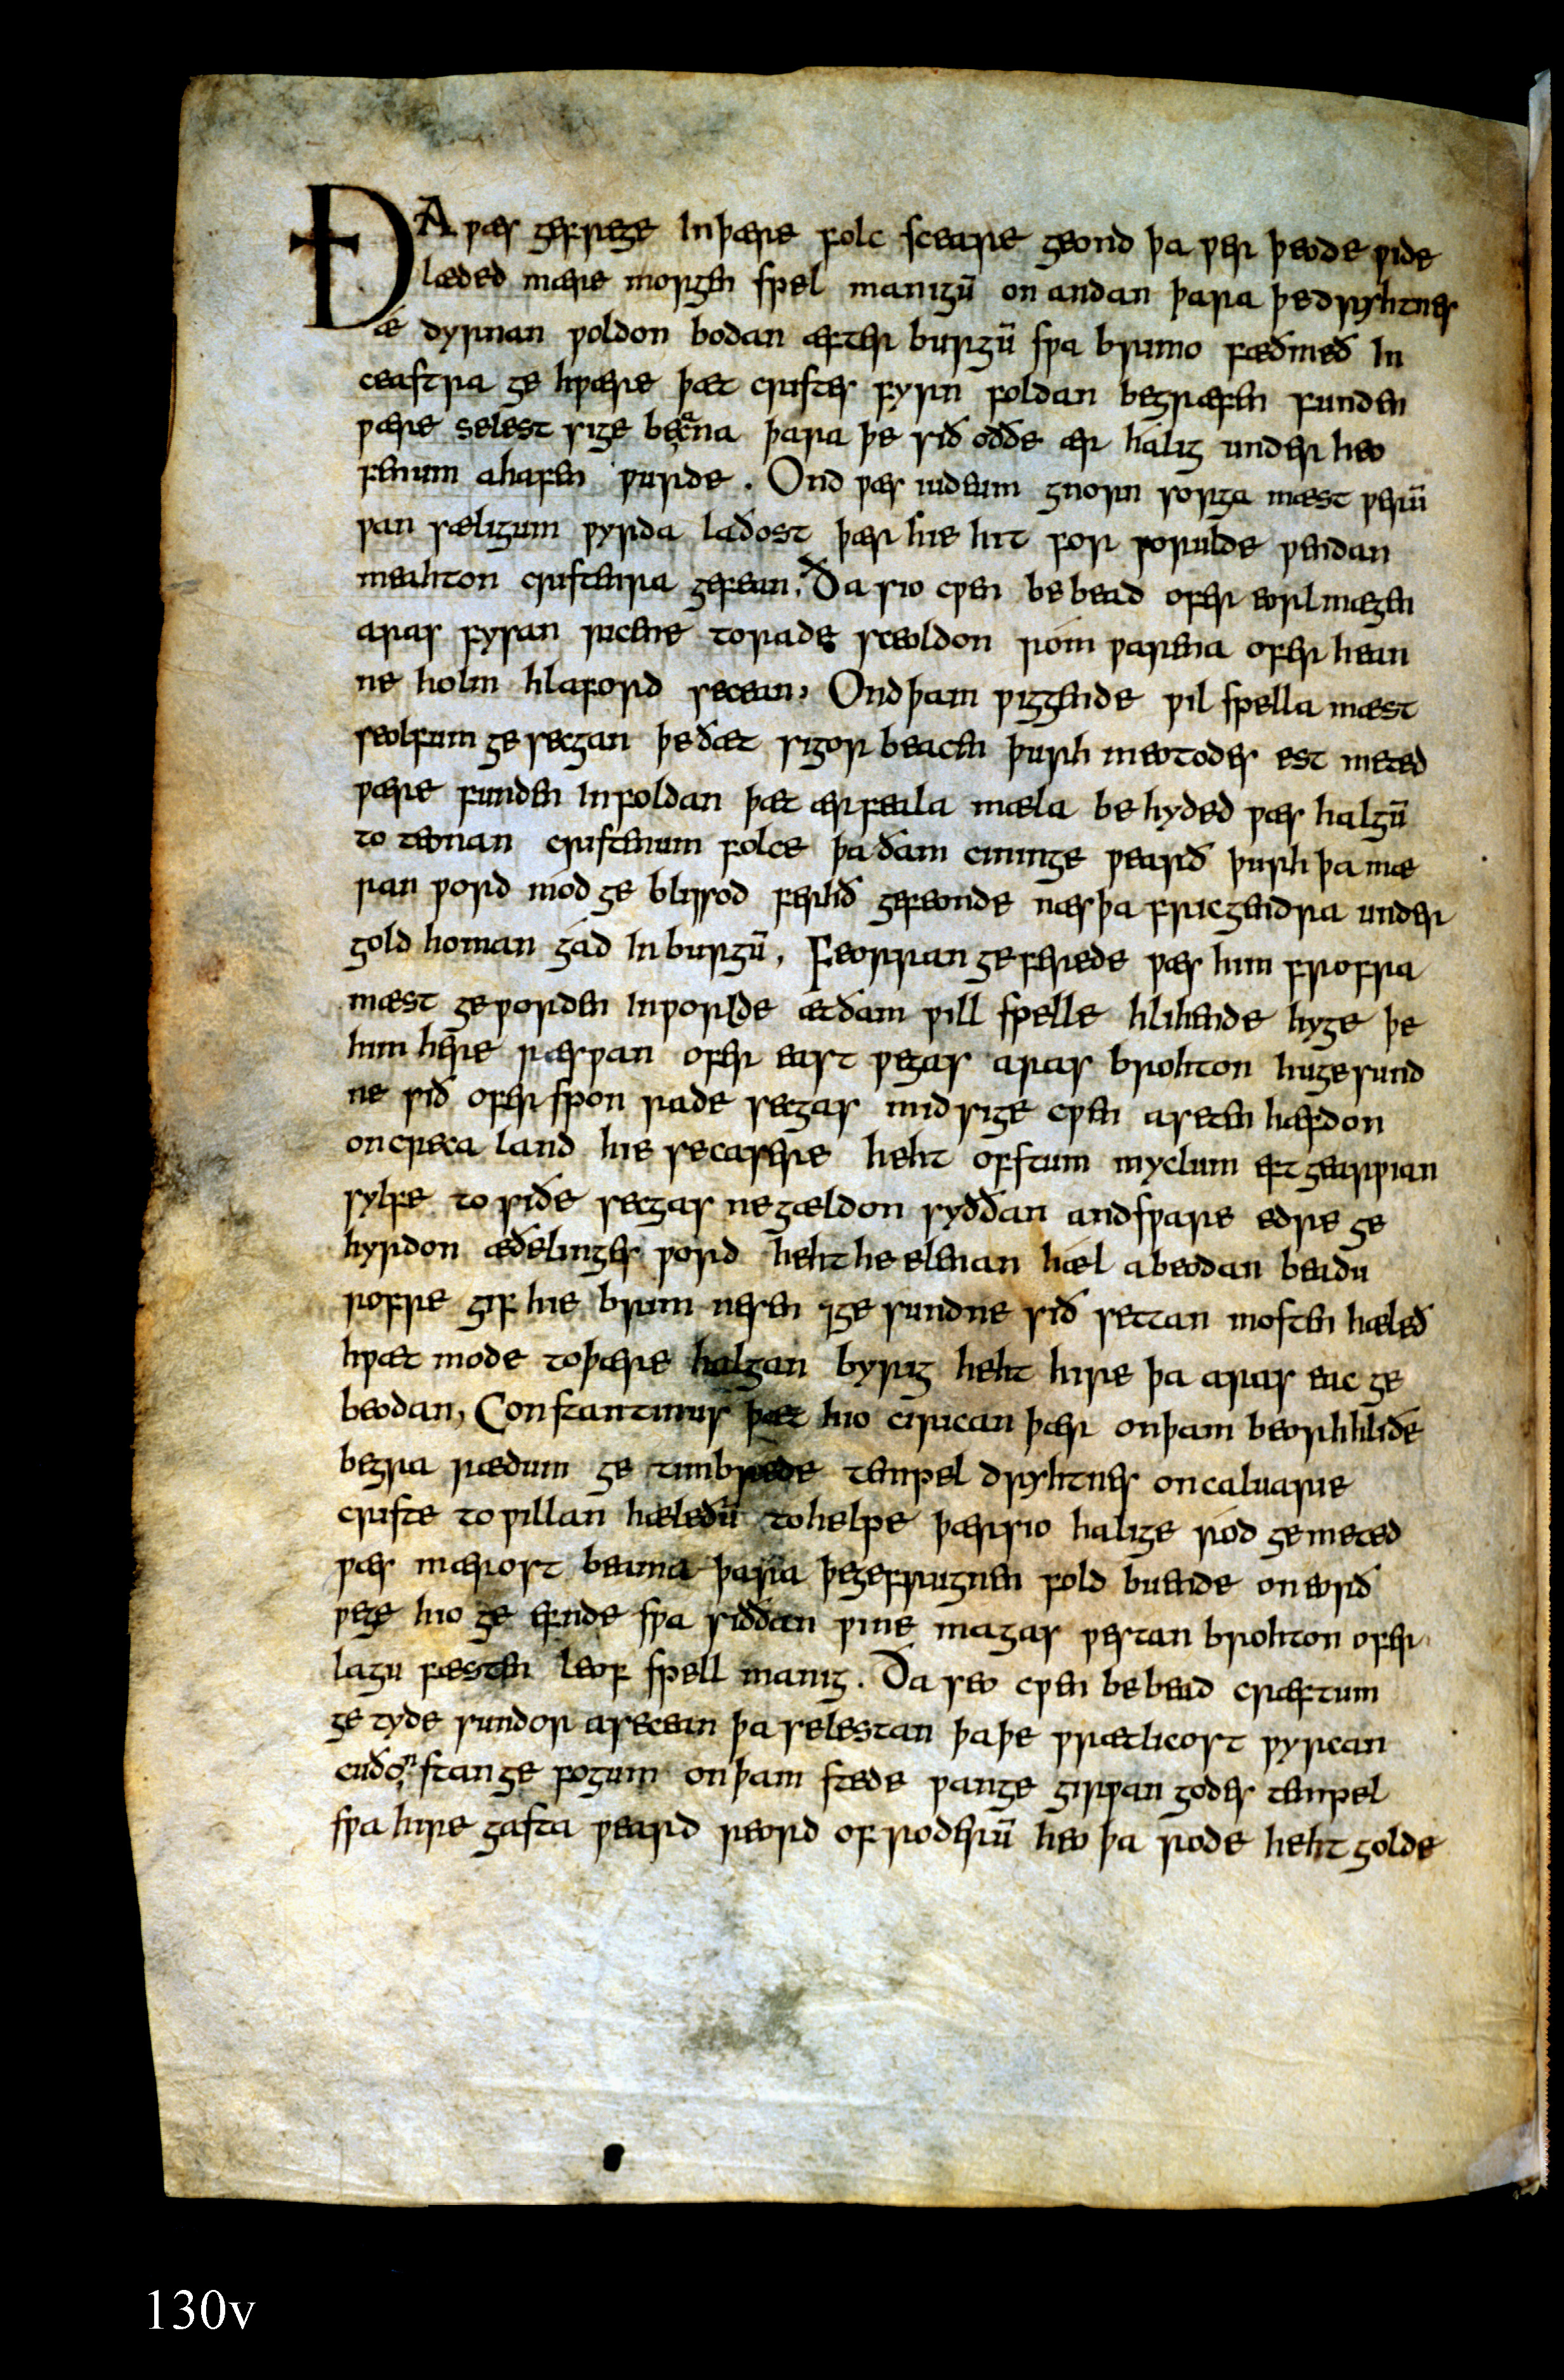 ÐA ƿæs gefrege in þære folc sceare geond þa ƿer þeode ƿide
læded mære morgen spel manigū on andan þara þe dryhtnes
æ dyrnan ƿoldon boden æfter burgū sƿa brimo fæðmeð in
ceastra ge hƿære þæt cristes fyrn foldan begræfen funden
ƿære selest sige beacna þara þe sið oððe ær halig under heo
fenum ahafen ƿurde. Ond ƿæs iudeum gnorn sorga mæst ƿerū
ƿan sæligum ƿyrda laðost þær hie hit for ƿorulde ƿendan
meahton cristenra gefean. Ða sio cƿen be bead ofer eorl mægen
aras fysan ricene to rade sceoldon rom ƿarena ofer hean
ne holm hlaford secean, Ond þam ƿiggende ƿil spella mæst
seolfum ge secgan þe ðæt sigor beacen þurh meotodes est meted
ƿære funden in foldan þæt ær feala mæla be hyded ƿæs halgū
to teonan cristenum folce þa ðam cininge ƿearð þurh þa mæ
ran ƿord mod ge blissod ferhð gefeonde næs þa fricgendra under
gold homan gad in burgū, Feorran geferede ƿæs him frofra
mæst ge ƿorden in ƿorlde æt ðam ƿill spelle hlihende hyge þe
him here ræsƿan ofer east ƿegas aras brohton hu gesund
ne sið ofer sƿon rade secgas mid sige cƿen aseten hæfdon
on creca land hie se casere heht ofstum myclum eft gearƿian
sylfe to siðe secgas ne gældon syððan andsƿare edre ge
hyrdon æðelinges ƿord heht he elenan hæl abeodan beadu
rofre gif hie brim nesen ⁊ge sundne sið settan mosten hæleð
hƿæt mode to þære halgan byrig heht hire þa aras eac ge
beodan, Constantinus þæt hio cirican þær on þam beorhhliðe
begra rædum ge timbrede tempel dryhtnes on caluarie
criste to ƿillan hæleðū to helpe þær sio halige rod gemeted
ƿæs mærost beama þara þe gefrugnen fold buende on eorð
ƿege hio ge efnde sƿa siððan ƿine magas ƿestan brohton ofer
lagu fæsten leof spell manig. Ða seo cƿen be bead cræftum
ge tyde sundor asecean þa selestan þa þe ƿrætlicost ƿyrcan
cuðon stan ge fogum on þam stede ƿange girƿan godes tempel
sƿa hire gasta ƿeard reord of roderū heo þa rode heht golde
130v